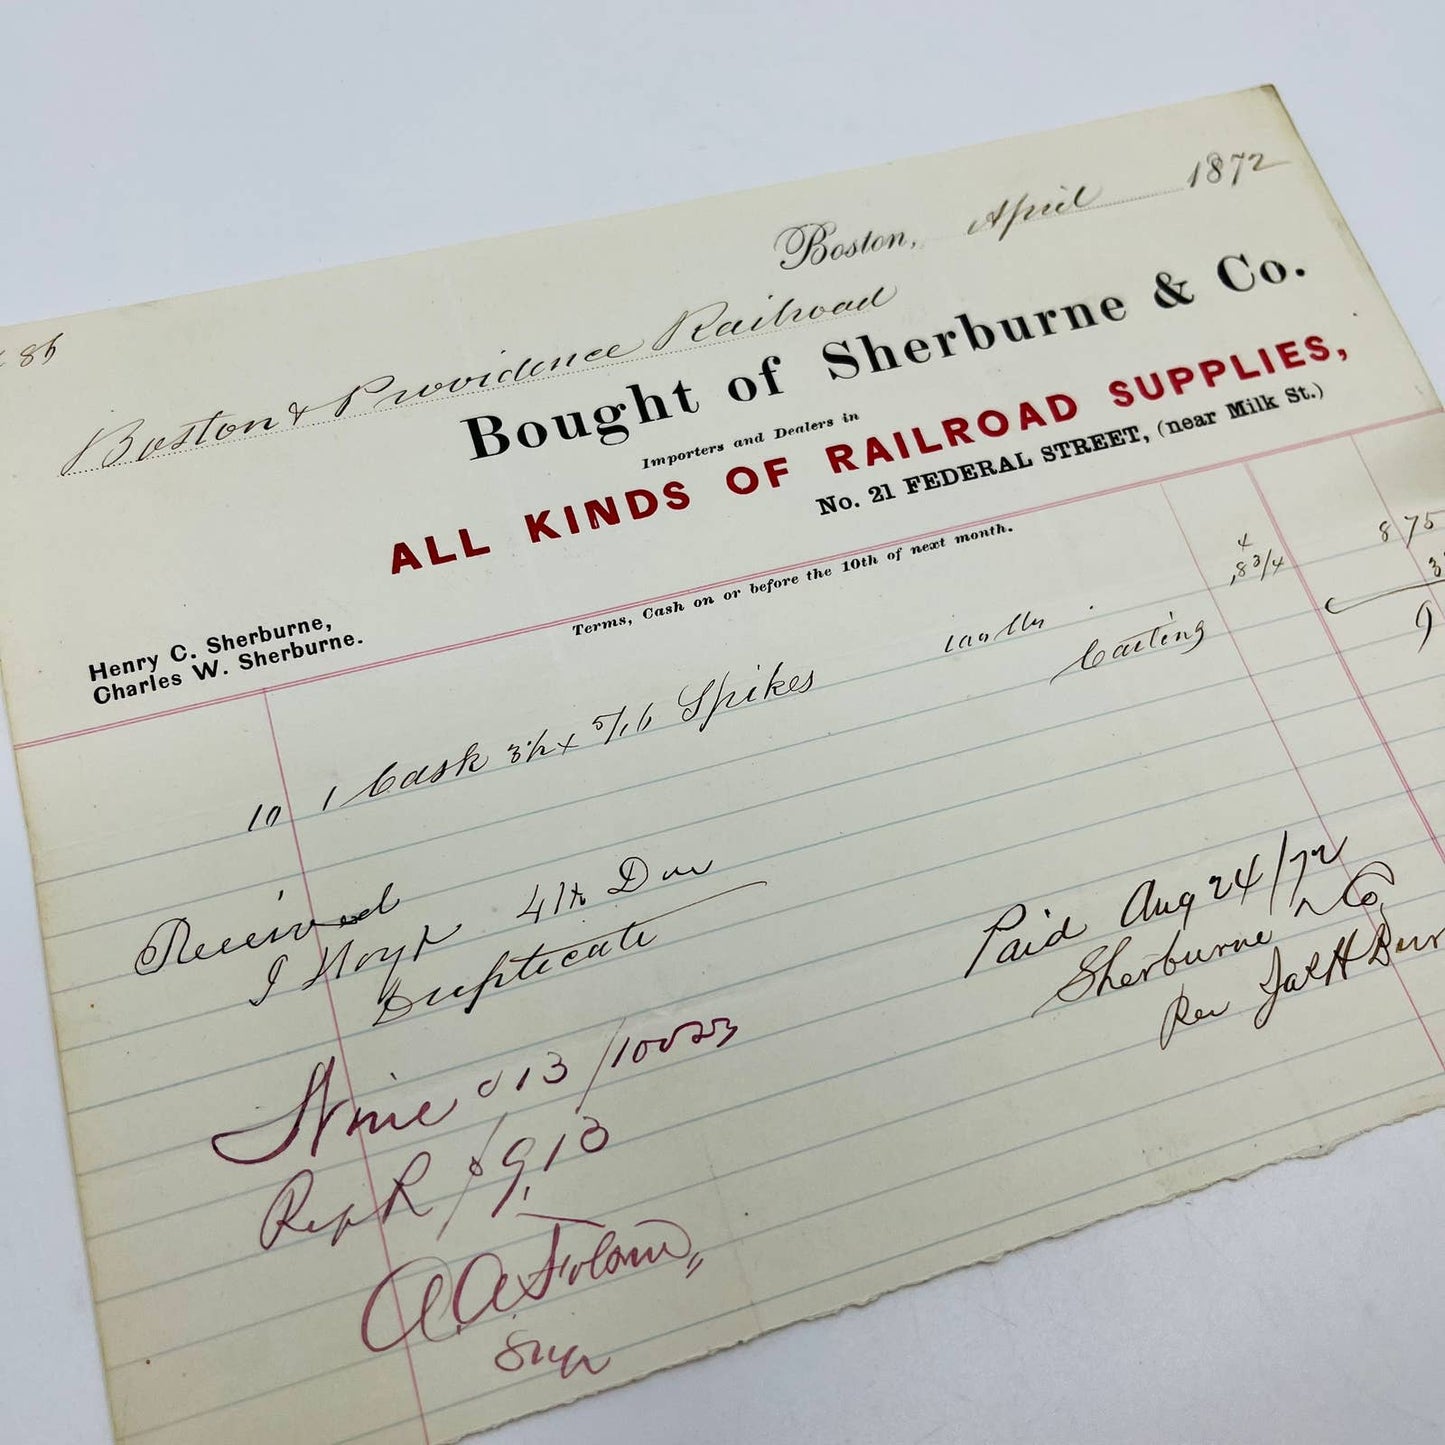 Boston, April 1872
Boston & Providence Railroad
Bought of Sherburne & Co.
Importers and Dealers in
ALL KINDS OF RAILROAD SUPPLIES,
No. 21 FEDERAL STREET, (near Milk St.)
Henry C. Sherburne,
Charles W. Sherburne.
Terms, Cash on or before the 10th of next month.
10 1 Cask 3½ x 5/16 Spikes 100 lbs 8 3/4 8 75
Carting
Received
J Hoyt 4th Div
Duplicate
Paid Aug 24/72
Sherburne & Co
Per
Rep R / 9,13
A. A. Folsom
Sup